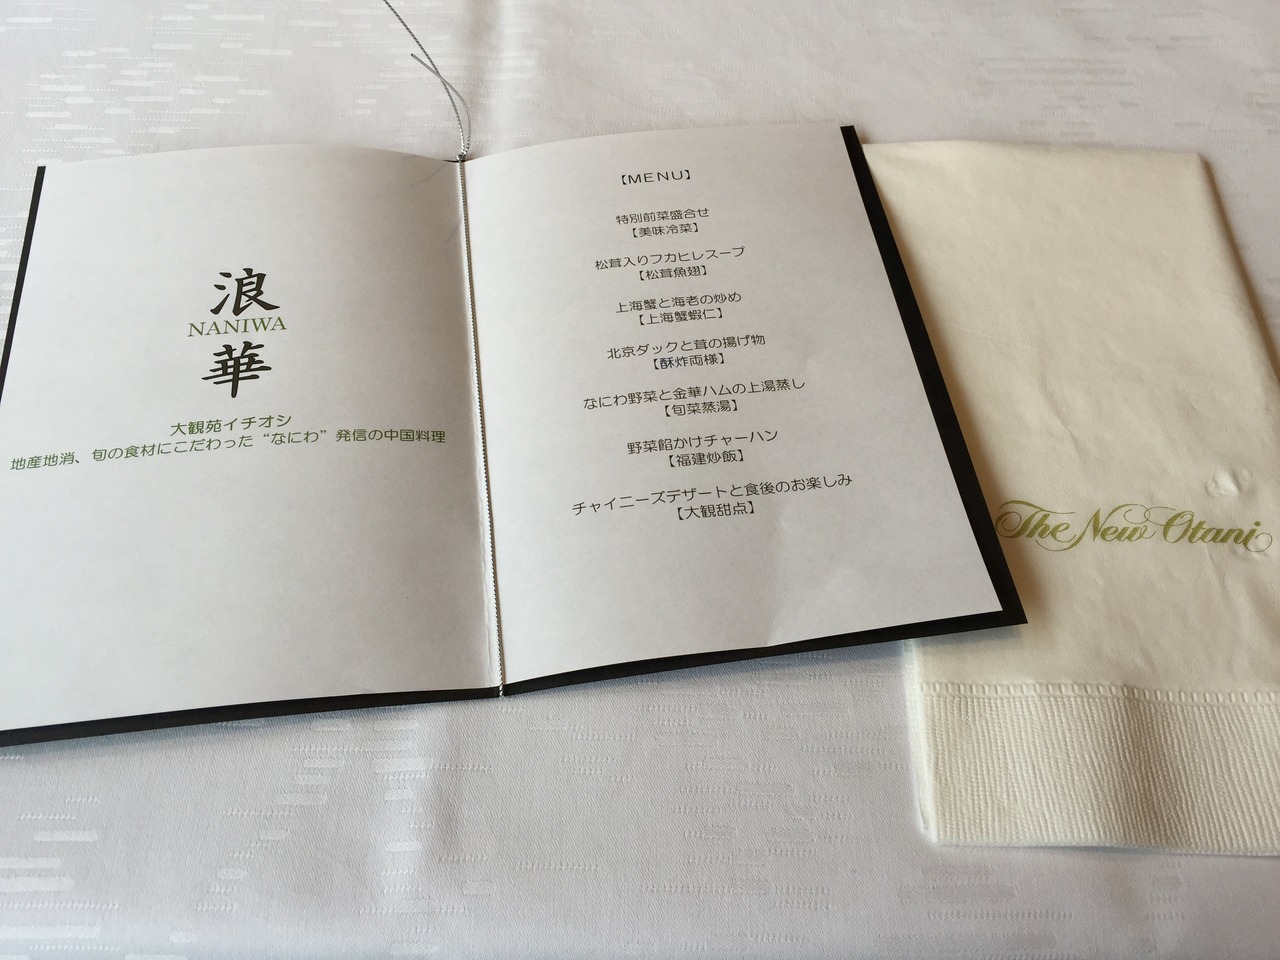 浪
NANIWA
華
大観苑イチオシ
地産地消、旬の食材にこだわった“なにわ”発信の中国料理
【MENU】
特別前菜盛合せ
【美味冷菜】
松茸入りフカヒレスープ
【松茸魚翅】
上海蟹と海老の炒め
【上海蟹蝦仁】
北京ダックと茸の揚げ物
【酥炸両様】
なにわ野菜と金華ハムの上湯蒸し
【旬菜蒸湯】
野菜餡かけチャーハン
【福建炒飯】
チャイニーズデザートと食後のお楽しみ
【大観甜点】
The New Otani